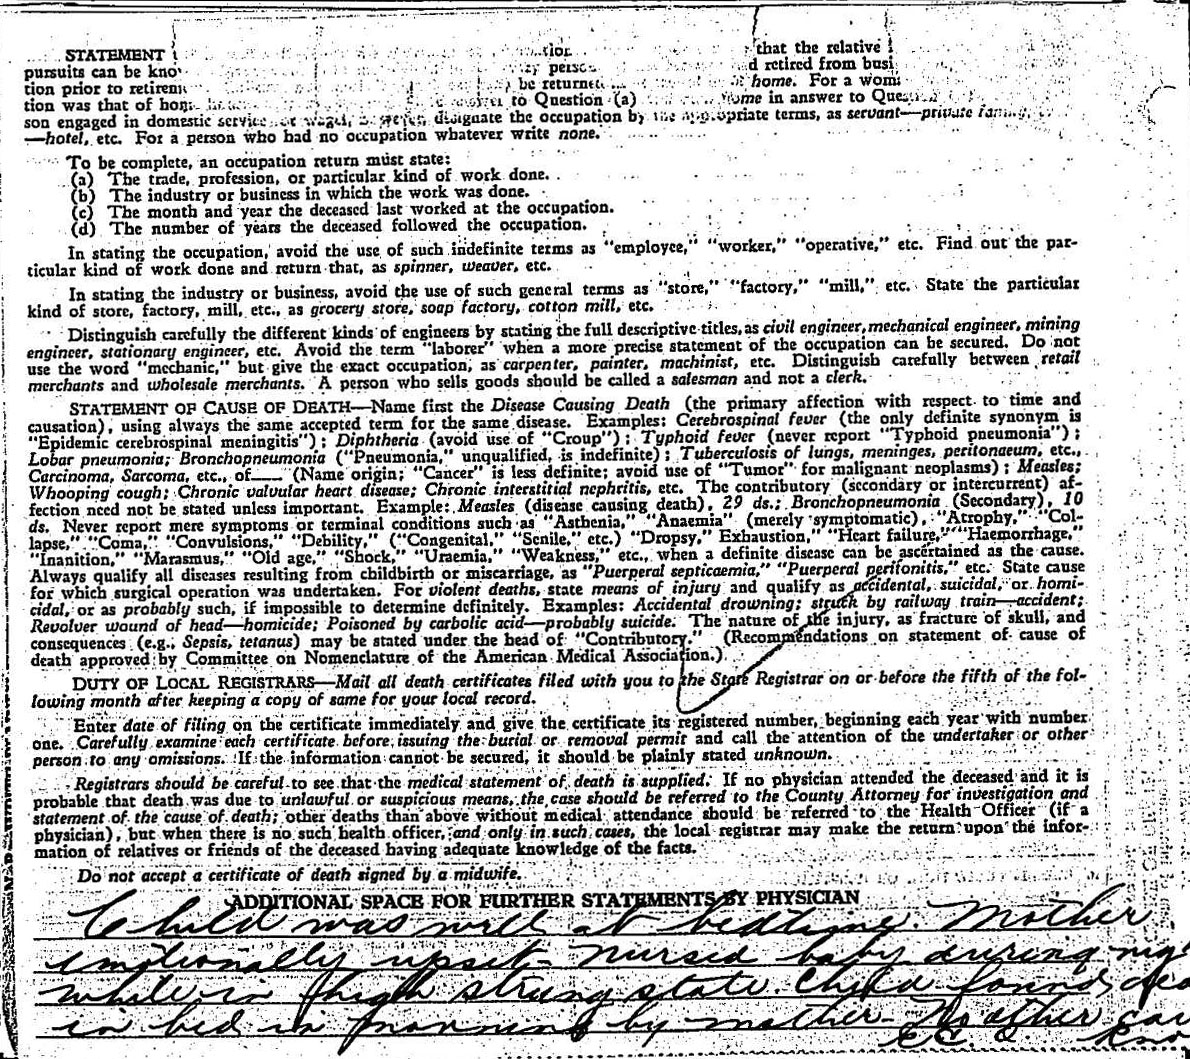 STATEMENT that the relative
pursuits can be perso d retired from busi
tion prior to retirem be returned home. For a wom
tion was that of hom to Question (a) home in answer to Ques
son engaged in domestic service designate the occupation by the appropriate terms, as servant—private family,
—hotel, etc. For a person who had no occupation whatever write none.
To be complete, an occupation return must state:
(a) The trade, profession, or particular kind of work done.
(b) The industry or business in which the work was done.
(c) The month and year the deceased last worked at the occupation.
(d) The number of years the deceased followed the occupation.
In stating the occupation, avoid the use of such indefinite terms as "employee," "worker," "operative," etc. Find out the par-
ticular kind of work done and return that, as spinner, weaver, etc.
In stating the industry or business, avoid the use of such general terms as "store," "factory," "mill," etc. State the particular
kind of store, factory, mill, etc., as grocery store, soap factory, cotton mill, etc.
Distinguish carefully the different kinds of engineers by stating the full descriptive titles, as civil engineer, mechanical engineer, mining
engineer, stationary engineer, etc. Avoid the term "laborer" when a more precise statement of the occupation can be secured. Do not
use the word "mechanic," but give the exact occupation, as carpenter, painter, machinist, etc. Distinguish carefully between retail
merchants and wholesale merchants. A person who sells goods should be called a salesman and not a clerk.
STATEMENT OF CAUSE OF DEATH—Name first the Disease Causing Death (the primary affection with respect to time and
causation), using always the same accepted term for the same disease. Examples: Cerebrospinal fever (the only definite synonym is
"Epidemic cerebrospinal meningitis"); Diphtheria (avoid use of "Croup"); Typhoid fever (never report "Typhoid pneumonia");
Lobar pneumonia; Bronchopneumonia ("Pneumonia," unqualified, is indefinite); Tuberculosis of lungs, meninges, peritonaeum, etc.,
Carcinoma, Sarcoma, etc., of____ (Name origin; "Cancer" is less definite; avoid use of "Tumor" for malignant neoplasms); Measles;
Whooping cough; Chronic valvular heart disease; Chronic interstitial nephritis, etc. The contributory (secondary or intercurrent) af-
fection need not be stated unless important. Example: Measles (disease causing death), 29 ds.; Bronchopneumonia (Secondary), 10
ds. Never report mere symptoms or terminal conditions such as "Asthenia," "Anaemia" (merely symptomatic), "Atrophy," "Col-
lapse," "Coma," "Convulsions," "Debility," ("Congenital," "Senile," etc.) "Dropsy," Exhaustion," "Heart failure," "Haemorrhage,"
"Inanition," "Marasmus," "Old age," "Shock," "Uraemia," "Weakness," etc., when a definite disease can be ascertained as the cause.
Always qualify all diseases resulting from childbirth or miscarriage, as "Puerperal septicaemia," "Puerperal peritonitis," etc. State cause
for which surgical operation was undertaken. For violent deaths, state means of injury and qualify as accidental, suicidal, or homi-
cidal, or as probably such, if impossible to determine definitely. Examples: Accidental drowning; struck by railway train—accident;
Revolver wound of head—homicide; Poisoned by carbolic acid—probably suicide. The nature of the injury, as fracture of skull, and
consequences (e.g., Sepsis, tetanus) may be stated under the head of "Contributory." (Recommendations on statement of cause of
death approved by Committee on Nomenclature of the American Medical Association.)
DUTY OF LOCAL REGISTRARS—Mail all death certificates filed with you to the State Registrar on or before the fifth of the fol-
lowing month after keeping a copy of same for your local record.
Enter date of filing on the certificate immediately and give the certificate its registered number, beginning each year with number
one. Carefully examine each certificate before issuing the burial or removal permit and call the attention of the undertaker or other
person to any omissions. If the information cannot be secured, it should be plainly stated unknown.
Registrars should be careful to see that the medical statement of death is supplied. If no physician attended the deceased and it is
probable that death was due to unlawful or suspicious means, the case should be referred to the County Attorney for investigation and
statement of the cause of death; other deaths than above without medical attendance should be referred to the Health Officer (if a
physician), but when there is no such health officer, and only in such cases, the local registrar may make the return upon the infor-
mation of relatives or friends of the deceased having adequate knowledge of the facts.
Do not accept a certificate of death signed by a midwife.
ADDITIONAL SPACE FOR FURTHER STATEMENTS BY PHYSICIAN
Child was well at bedtime. Mother
emotionally upset- Nursed baby during nig
while in high strung state. Child found dea
in bed in morning by mother- No other cau